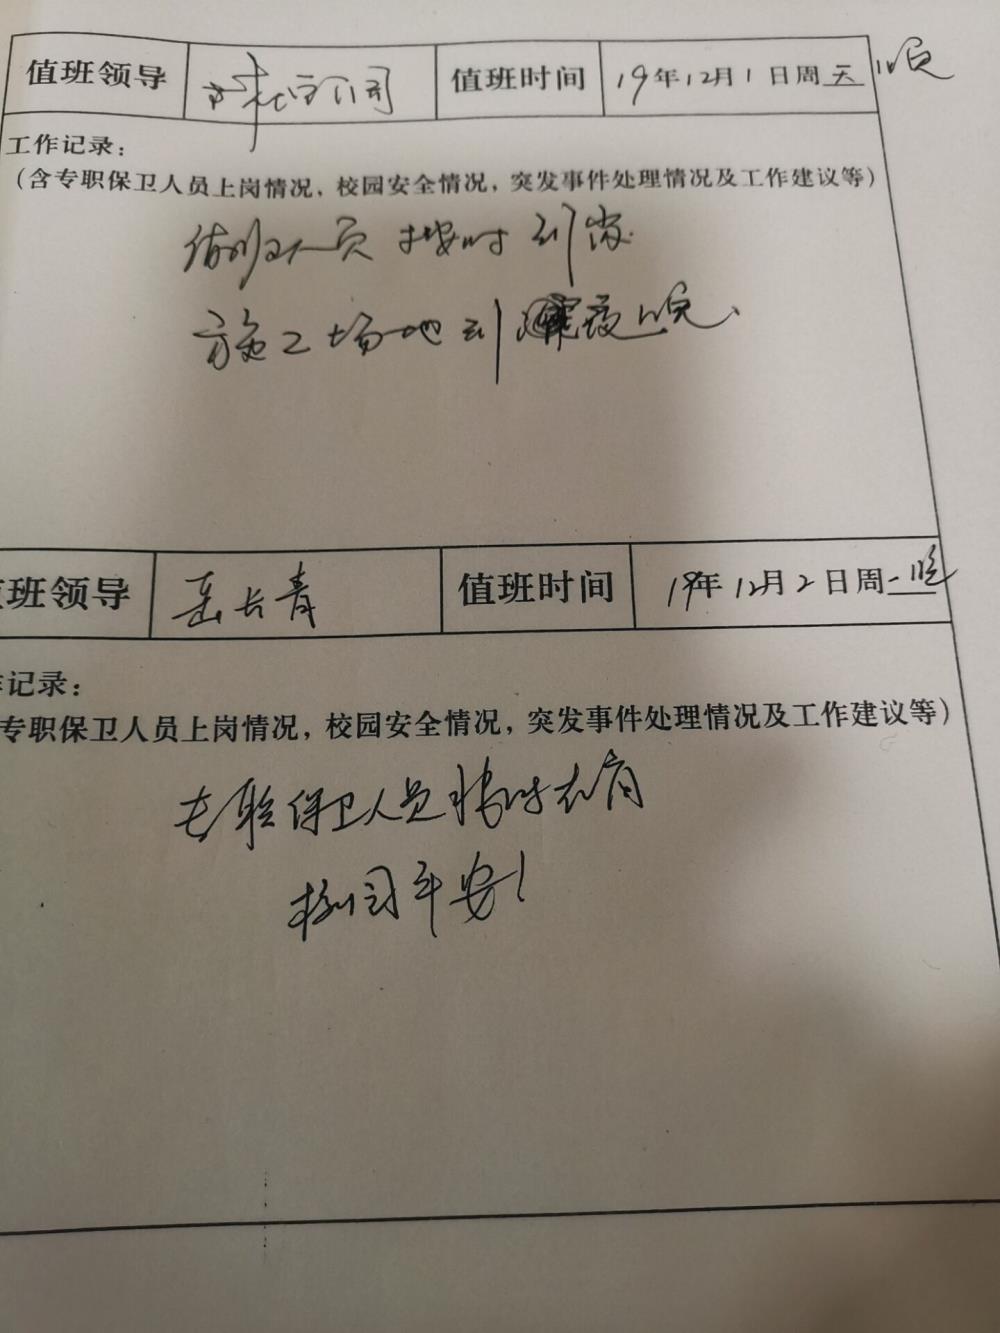 值班领导 值班时间 19年12月1日周天 晚
工作记录：
（含专职保卫人员上岗情况，校园安全情况，突发事件处理情况及工作建议等）
保卫人员按时到岗.
施工场地到 夜晚.
班领导 岳长青 值班时间 19年12月2日周一晚
记录：
专职保卫人员上岗情况，校园安全情况，突发事件处理情况及工作建议等）
专职保卫人员按时在岗
校园平安！